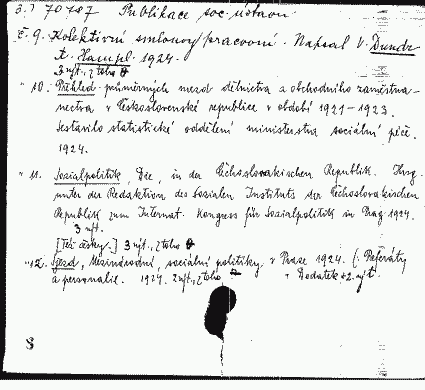 3.) 70787 Publikace soc. ústavu
č. 9. Kolektivní smlouvy pracovní. Napsal V. Dundr
a. Hampl. 1924.
3 výt.
" 10. Přehled průměrných mezd dělnictva a obchodního zaměstna-
nectva v Československé republice v období 1921-1923.
Sestavilo statistické oddělení ministerstva sociální péče.
1924.
" 11. Sozialpolitik, Die, in der Čechoslovakischen Republik. Hrsg.
unter der Redaktion des Sozialen Instituts der Čechoslovakischen
Republik zum Internat. Kongress für Sozialpolitik in Prag 1924.
3 výt.
[Též česky.] 3 výt., z toho
" 12. Sjezd, Mezinárodní, sociální politiky, v Praze 1924. (. Referáty
a personalie. 1924. 2 výt., z toho " Dodatek 2. výt.
8